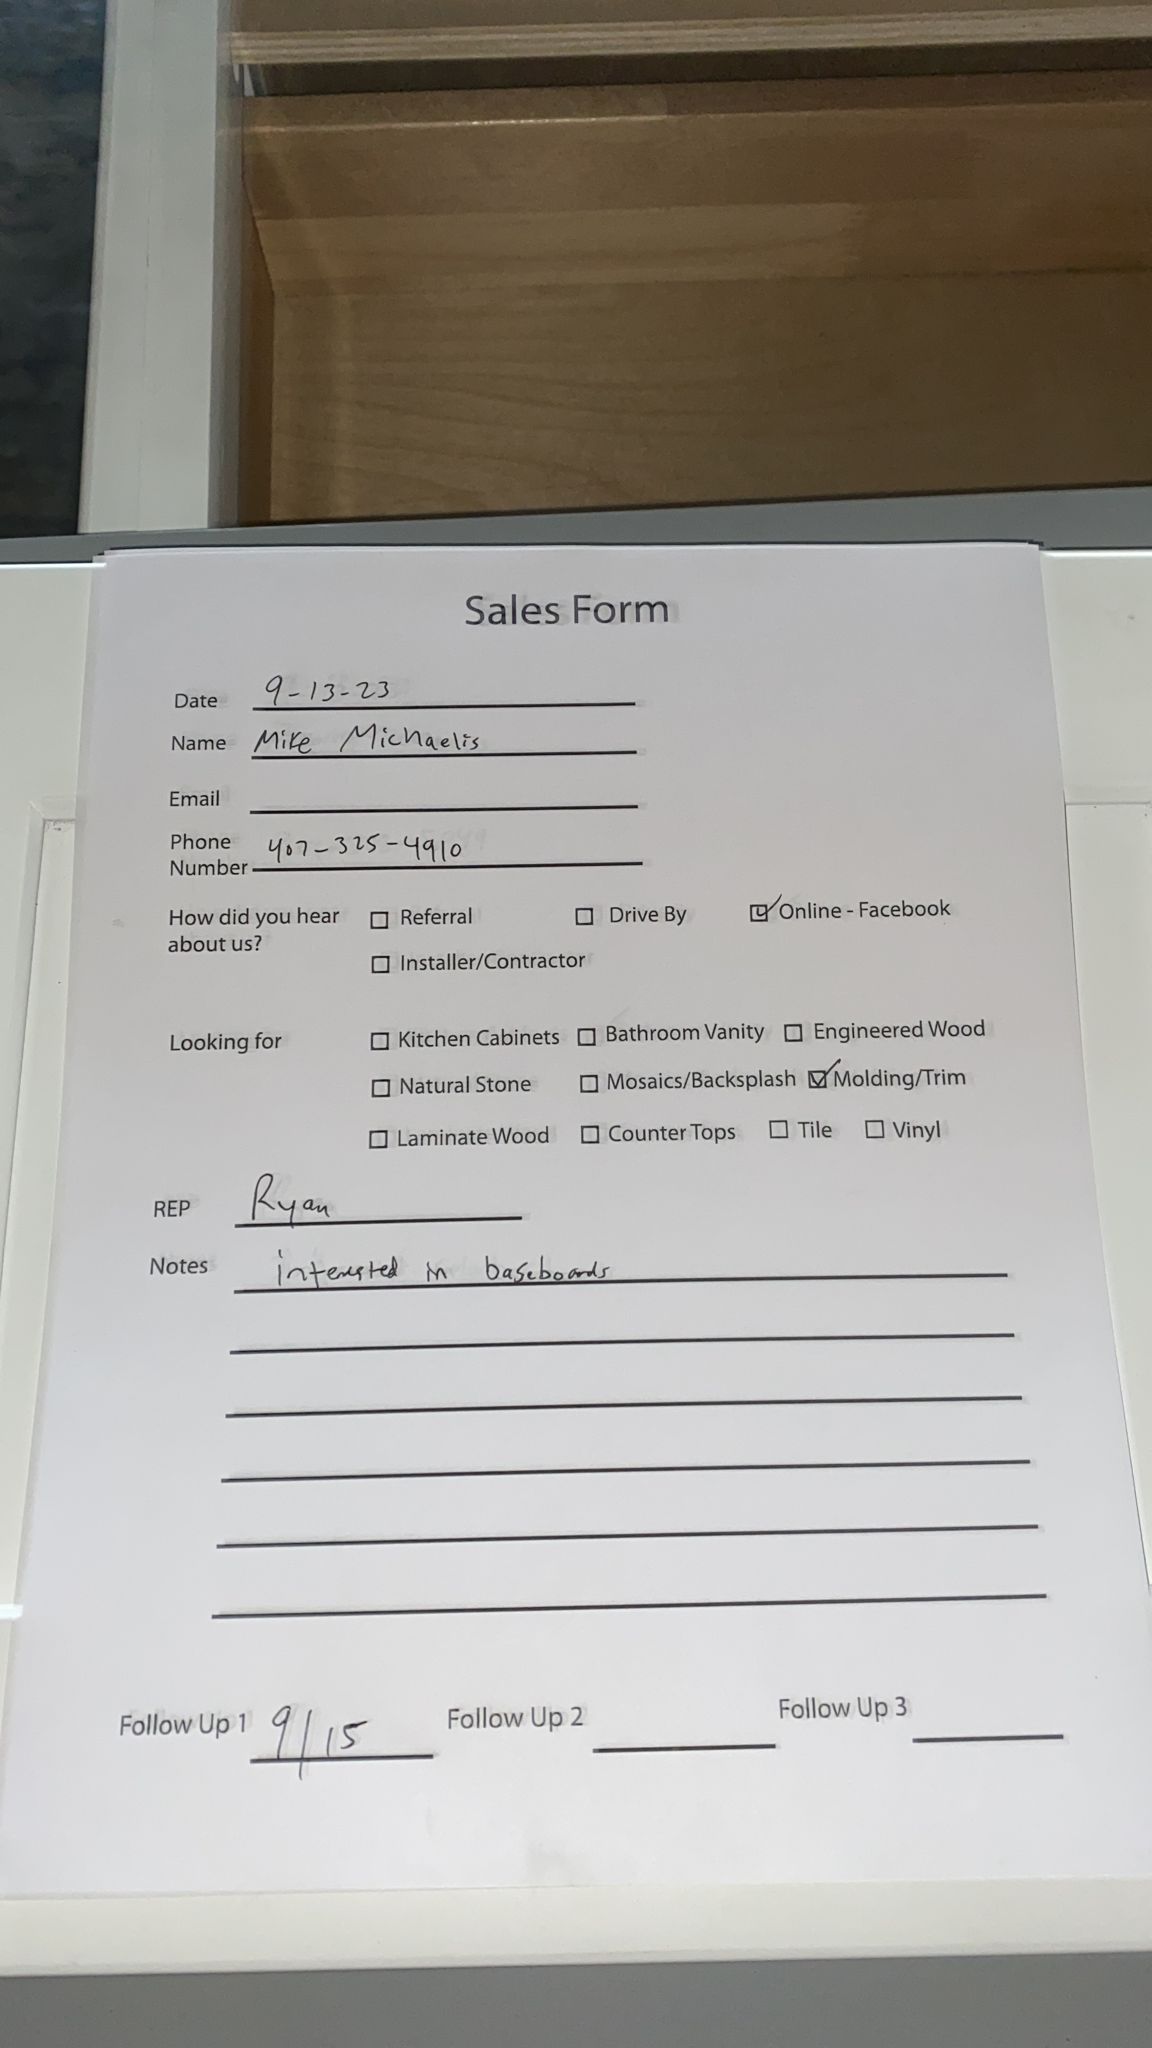 Sales Form
Date 9-13-23
Name Mike Michaelis
Email
Phone
Number 407-325-4910
How did you hear ☐ Referral ☐ Drive By ☑ Online - Facebook
about us?
☐ Installer/Contractor
Looking for ☐ Kitchen Cabinets ☐ Bathroom Vanity ☐ Engineered Wood
☐ Natural Stone ☐ Mosaics/Backsplash ☑ Molding/Trim
☐ Laminate Wood ☐ Counter Tops ☐ Tile ☐ Vinyl
REP Ryan
Notes interested in baseboards
Follow Up 1 9/15 Follow Up 2 Follow Up 3